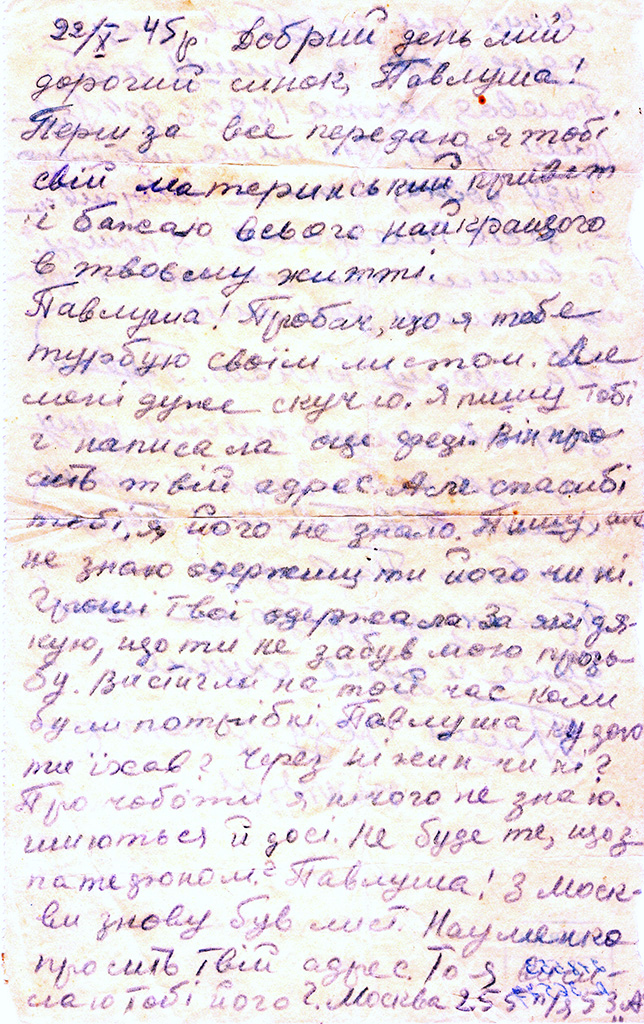 22/X-45р. Добрий день мій
дорогий синок, Павлуша!
Перш за все передаю я тобі
свій материнський привіт
і бажаю всього найкращого
в твоєму житті.
Павлуша! Пробач, що я тебе
турбую своїм листом. Але
мені дуже скучно. Я пишу тобі
і написала оце Феді. Він про
сить твій адрес. Але спасибі
тобі, я його не знаю. Пишу, але
не знаю одержиш ти його чи ні.
Гроші твої одержала за які дя-
кую, що ти не забув мою прозь-
бу. Вистигли на той час коли
були потрібні. Павлуша, кудою
ти їхав? Через Ніжин чи ні?
Про чоботи я нічого не знаю.
шиються й досі. Не буде те, що з
патефоном? Павлуша! З Моск-
ви знову був лист. Науменко
просить твій адрес. То я
лаю тобі його г. Москва 255